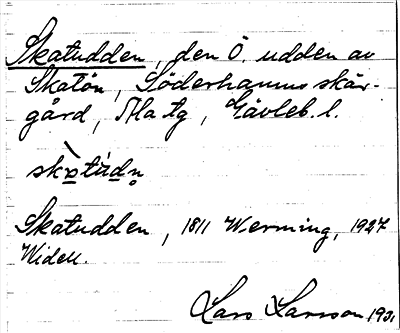 Skatudden, den Ö. udden av
Skatön, Söderhamns skär-
gård, Ala tg, Gävleb. l.
Skatudden, 1811 Werming, 1927
Widell.
Lars Larsson 1931